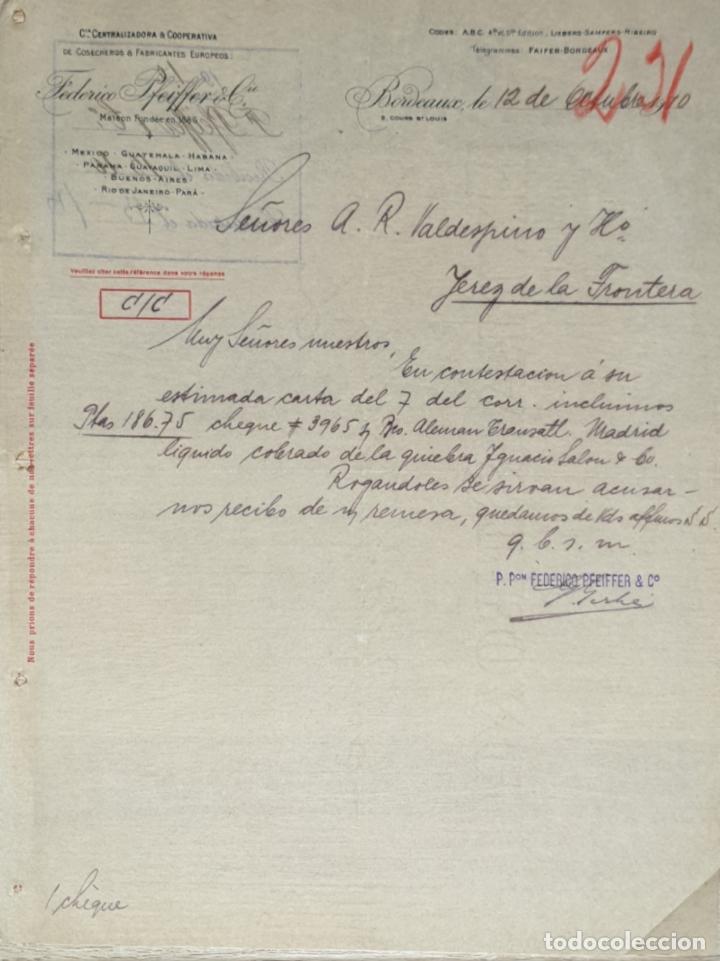 Cía. Centralizadora & Cooperativa
de Cosecheros & Fabricantes Europeos:
Federico Pfeiffer & Cie
Maison Fondée en 1886
Mexico - Guatemala - Habana
Panama - Guayaquil - Lima
Buenos-Aires
Rio de Janeiro - Pará
Codes: A.B.C. 4th et 5th Edition, Liebers-Samper's-Ribeiro
Télégrammes: FAIFER-BORDEAUX
231
Bordeaux, le 12 de Octubre 1910
2, Cours St Louis
Señores A. R. Valdespino y Ho
Jerez de la Frontera
Veuillez citer cette référence dans votre réponse
d/d
Muy Señores nuestros,
En contestacion á su
estimada carta del 7 del corr. incluimos
Ptas 186.75 cheque # 3965 Bco. Aleman Transatl. Madrid
liquido cobrado de la quiebra Ignacio Salon & Co.
Rogandoles se sirvan acusar-
nos recibo de remesa, quedamos de Vds affmos S S
q. b. s. m.
P. Pon FEDERICO PFEIFFER & Co
Nous prions de répondre à chacune de nos lettres sur feuille séparée
1 chèque
todocoleccion